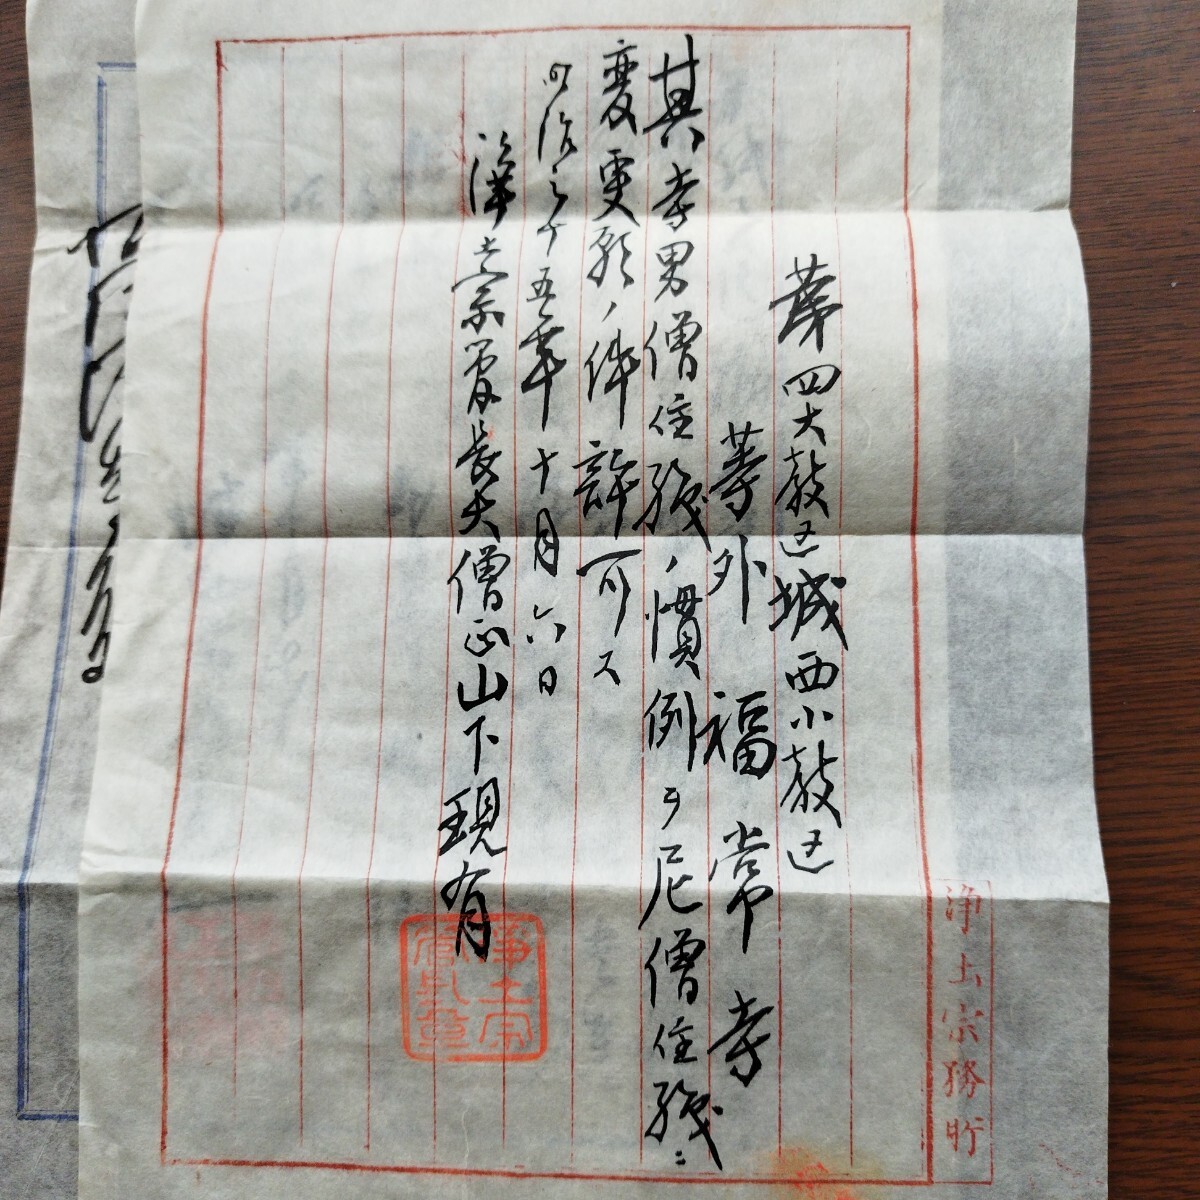 第四大教区城西小教区
等外 福常寺
其寺男僧住職ノ慣例ヲ尼僧住職ニ
変更願ノ件許可ス
明治三十五年十月六日
浄土宗管長大僧正山下現有
浄土宗管長之章
浄土宗務所